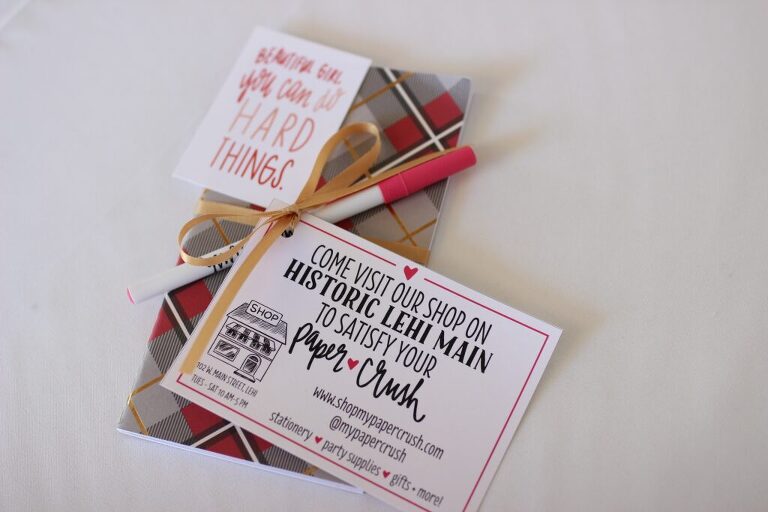 BEAUTIFUL GIRL
you can do
HARD
THINGS.
COME VISIT OUR SHOP ON
HISTORIC LEHI MAIN
TO SATISFY YOUR
paper crush
SHOP
102 W. MAIN STREET, LEHI
TUES - SAT 10 AM-5 PM
www.shopmypapercrush.com
@mypapercrush
stationery ♥ party supplies ♥ gifts + more!